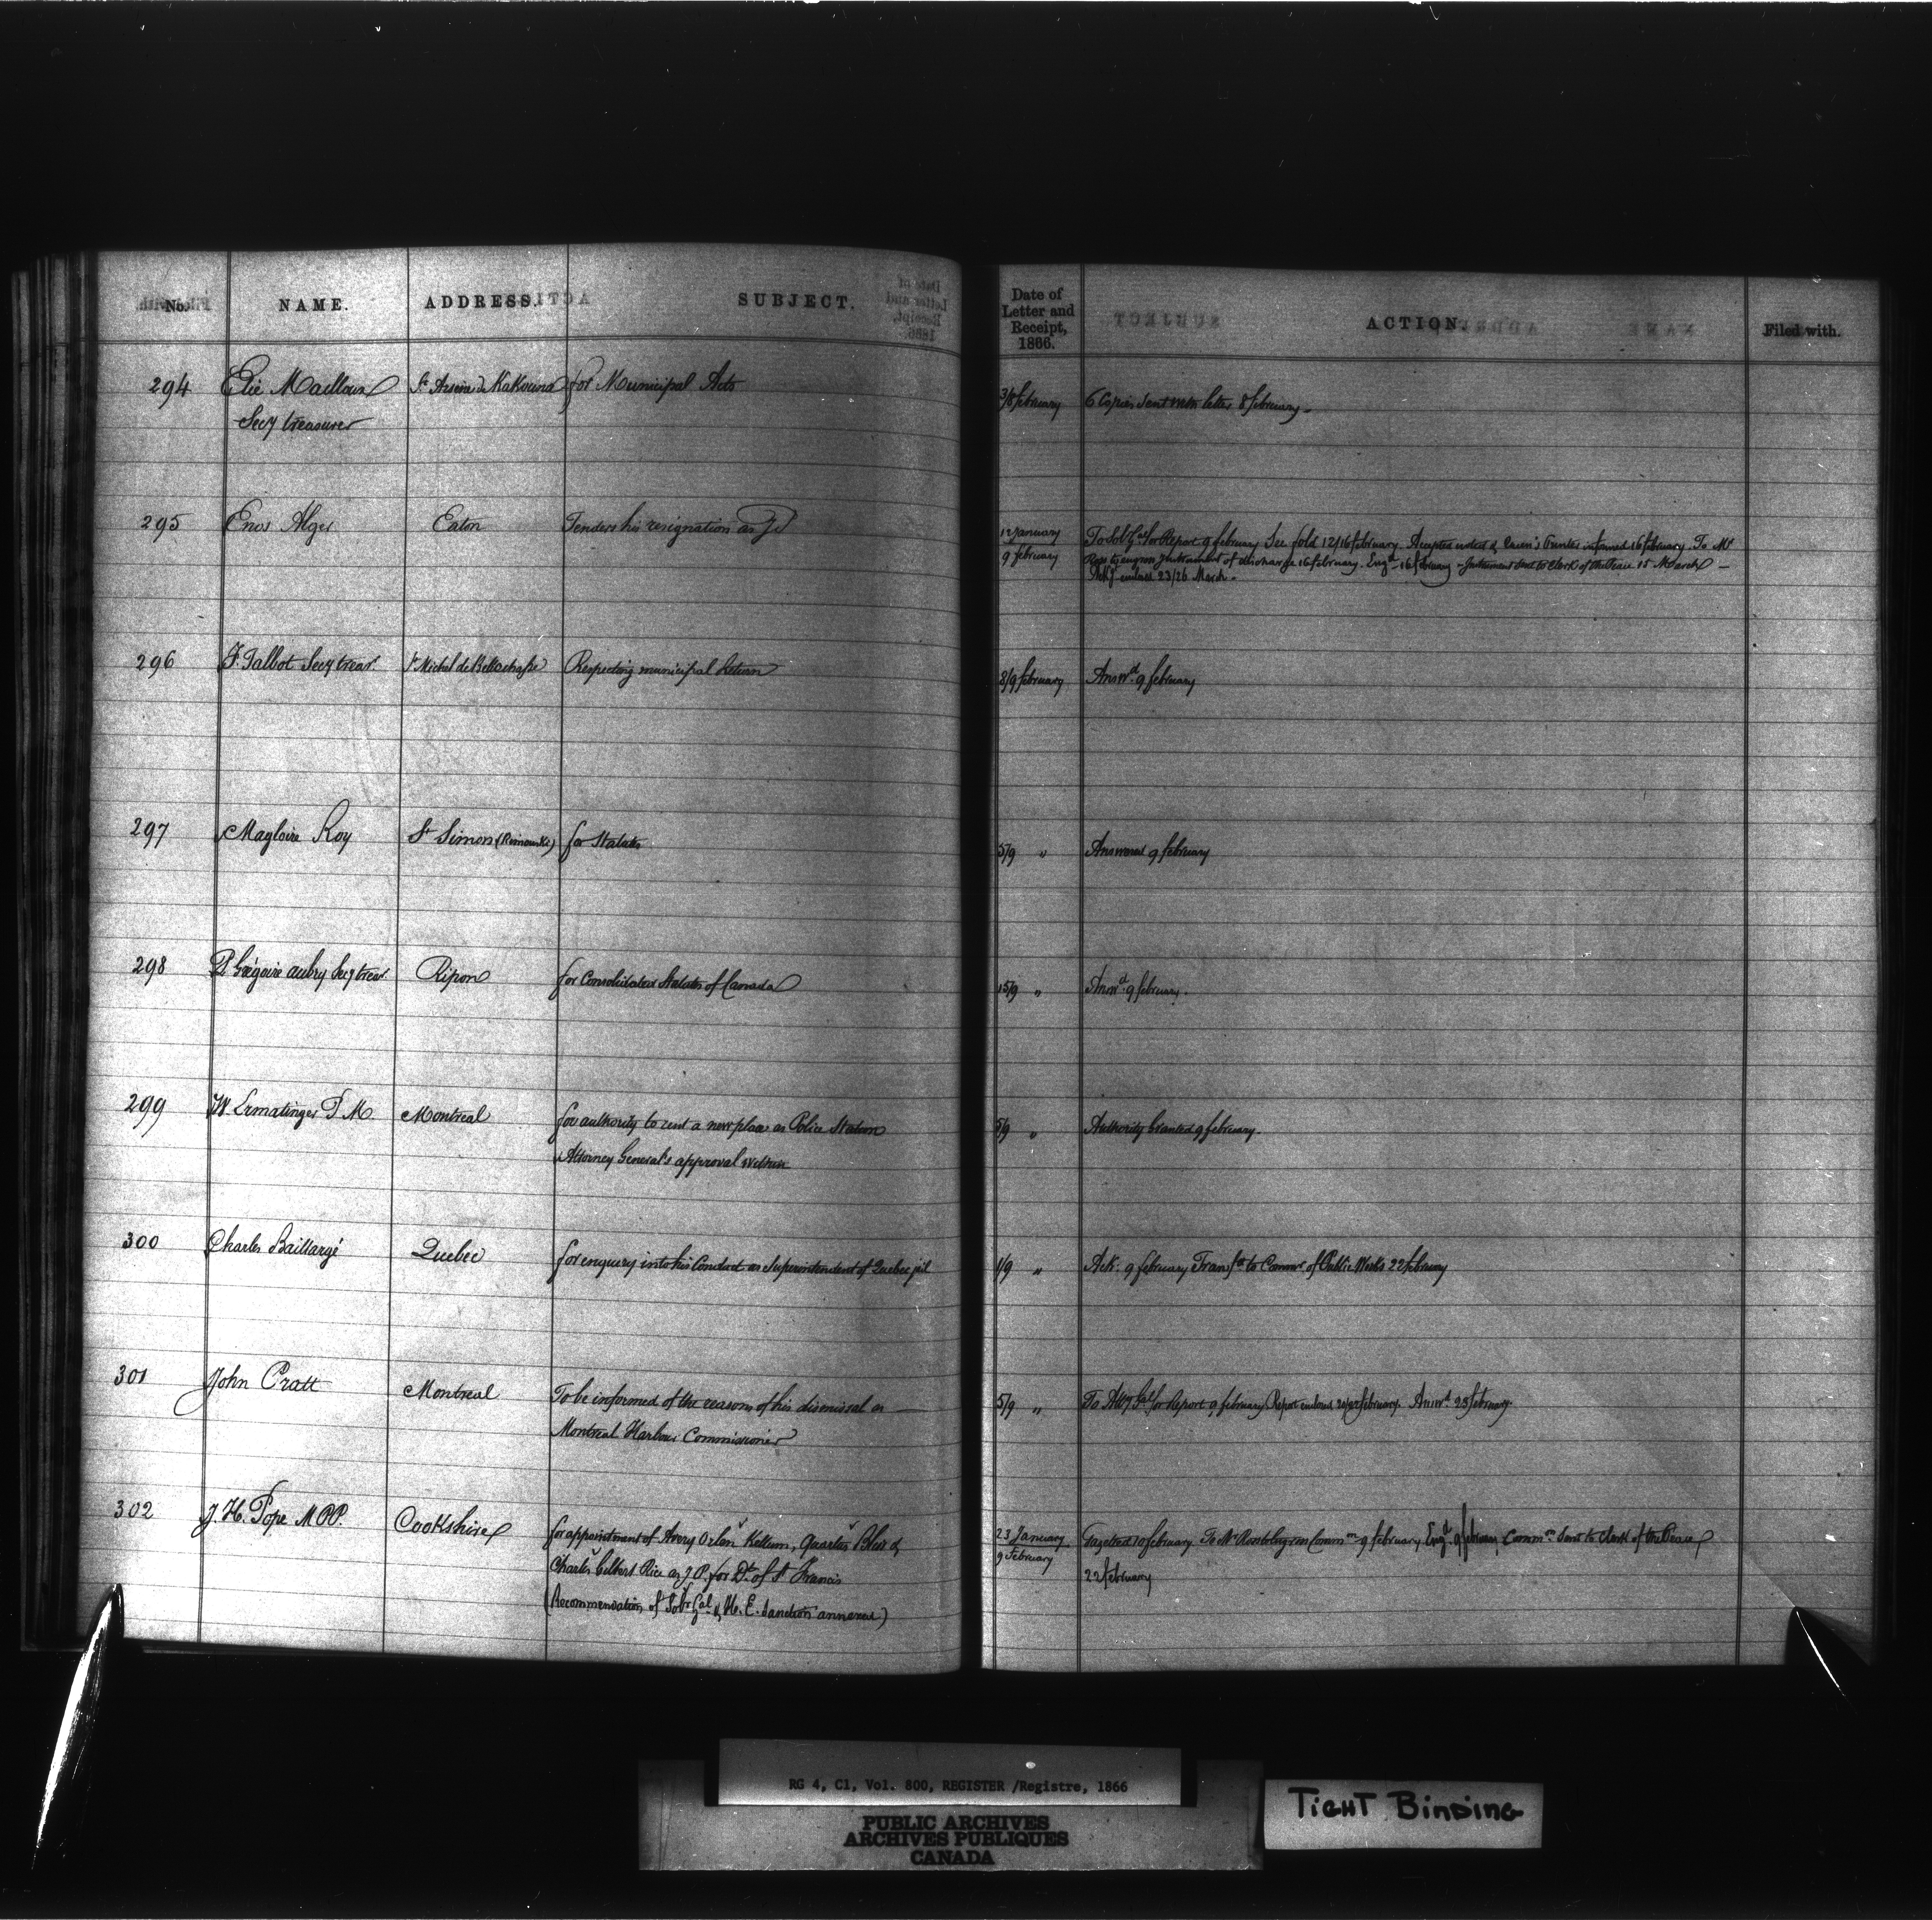 No. NAME. ADDRESS. SUBJECT. Date of Letter and Receipt, 1866. ACTION. Filed with.
294 Elie Mailloux St Arsène de Kakouna for Municipal Acts 3/8 february 6 Copies sent with letter 8 february.
Secy treasurer
295 Enos Alger Eaton Tenders his resignation as JP 12 january
9 february To Sol. Gal for Report 9 february See fold 12/16 february. Accepted noted & Queen's Printer informed 16 february. To Mr
Ross to engross Instrument of discharge 16 february. Engd 16 february - Instrument sent to Clerk of the Peace 15 March -
endosd 23/26 March.
296 F. Talbot Secy trear St Michel de Bellechasse Respecting municipal Return 8/9 february Answd 9 february
297 Magloire Roy St Simon (Rimouski) for Statutes 5/9 " Answered 9 february
298 P. Grégoire aubry Secy trear Ripon for Consolidated Statutes of Canada 15/9 " Answd 9 february.
299 W Ermatinger P M Montreal for authority to rent a new place as Police Station 5/9 " Authority Granted 9 february.
Attorney General's approval written
300 Charles Baillargé Quebec for enquiry into his Conduct as Superintendent of Quebec jail 1/9 " Ack. 9 february Transfd to Commr of Public Works 22 february
301 John Pratt Montreal To be informed of the reasons of his dismissal as 5/9 " To Atty Gal for Report 9 february Report endosed february. Answd 23 february
Montreal Harbour Commissioner
302 J. H. Pope M.P.P. Cookshire for appointment of Avery Orlen Kellum, Quartus Bliss & 23 January
9 February Gazetted 10 february. To Mr Ross to engross Common 9 february, Engd 9 february, Common sent to Clerk of the Peace
Charles Gilbert Rice as J.P. for Dt of St Francis 22 february
(Recommendation of Solr Gal & H. E. sanction annexed)
RG 4, C1, Vol. 800, REGISTER /Registre, 1866
PUBLIC ARCHIVES
ARCHIVES PUBLIQUES
CANADA
TIGHT BINDING